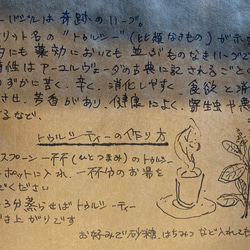 ーバジルは 奇跡のハーブ。
リット名の "トゥルシー"(比類なきもの)が示
的にも 薬効においても 並ぶものなきハーブで
特性は アーユルヴェーダの古典に記されるごとく
わずかに苦く、辛く、消化しやすく、食欲と消
させ、芳香があり、健康によく、寄生虫や悪
るなど、
トゥルシーティーの作り方
スプーン一杯(ひとつまみ)のトゥルシー
ポットに入れ、一杯分のお湯を
ください
~3分蒸らせばトゥルシーティー
でき上がりです
お好みで砂糖、はちみつなど入れ